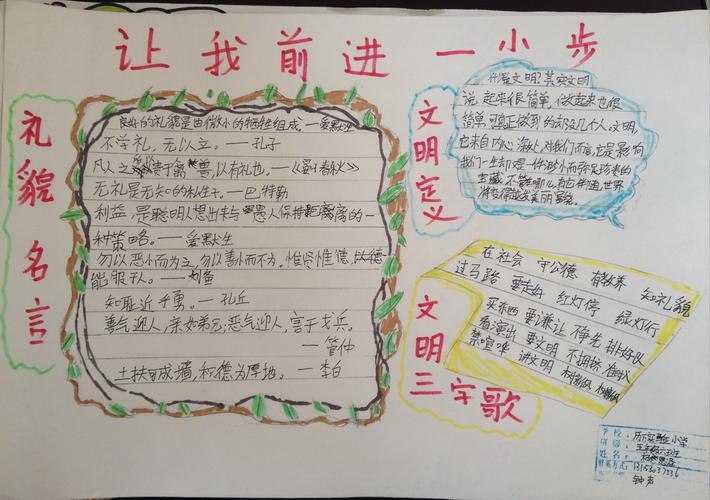 让我前进一小步
礼貌名言
良好的礼貌是由微小的牺牲组成。——爱默生
不学礼，无以立。——孔子
凡人之 贵于禽 ，以有礼也。——《晏子春秋》
无礼是无知的私生子。——巴特勒
利益，是聪明人想出来与愚人保持距离的一
种策略。——爱默生
勿以恶小而为之，勿以善小而不为。惟贤惟德，以德
能服于人。——刘备
知耻近乎勇。——孔丘
善气迎人，亲如弟兄；恶气迎人，害于戈兵。
——管仲
土扶可成墙，积德为厚地。——李白
文明定义
什么是文明？其实文明
说起来很简单，做起来也很
简单，可真正做到的却没几个人。文明，
它来自内心深处，对我们而言，它是影响
我们一生却是一件渺小而弥足珍贵的
宝藏，不管在哪儿，有它伴随，世界
将变得越发美丽富饶。
文明三字歌
在社会 守公德 有教养 知礼貌
过马路 要走好 红灯停 绿灯行
买东西 要谦让 争先 排好队
看演出 要文明 不拥挤
禁喧哗 讲文明
学校：历下实验小学
班级：五年级六班
姓名：
联系方式：